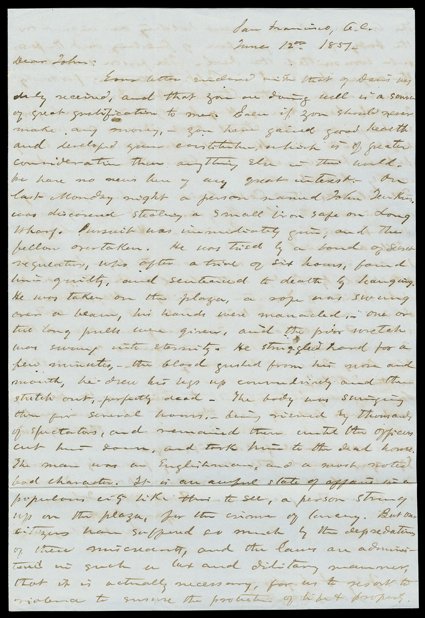 San Francisco, A.C.
June 12th 1851
Dear John:
Your letter enclosed with that of was
duly received, and that you are doing well is a source
of great gratification to me. Even if you should never
make any money, you have gained good health
and developed your constitution, which is of greater
consideration than anything else in the world.
We have no news here of any great interest. On
last Monday night a person named John Jenkins
was discovered stealing a small iron safe on Long
Wharf. Pursuit was immediately given, and the
fellow overtaken. He was tried by a band of
regulators, who after a trial of six hours, found
him guilty, and sentenced to death by hanging.
He was taken on the plaza, a rope was swung
over a beam, his hands were manacled, - one or
two long pulls were given, and the poor wretch
was swung into eternity. He struggled hard for a
few minutes, - the blood gushed from his nose and
mouth, he drew his legs up convulsively and then
stretch out, perfectly dead - The body was swinging
there for several hours, being viewed by thousands
of spectators, and remained there until the officers
cut him down, and took him to the dead house.
The man was an Englishman, and a most noted
bad character. It is an awful state of affairs in a
populous city like this to see, a person strung
up on the plaza, for the crime of larceny. But our
citizens have suffered so much by the depredations
of these miscreants, and the laws are adminis-
tered in such a lax and dilitary manner,
that it is actually necessary, for us to resort to
violence to ensure the protection of life & property.